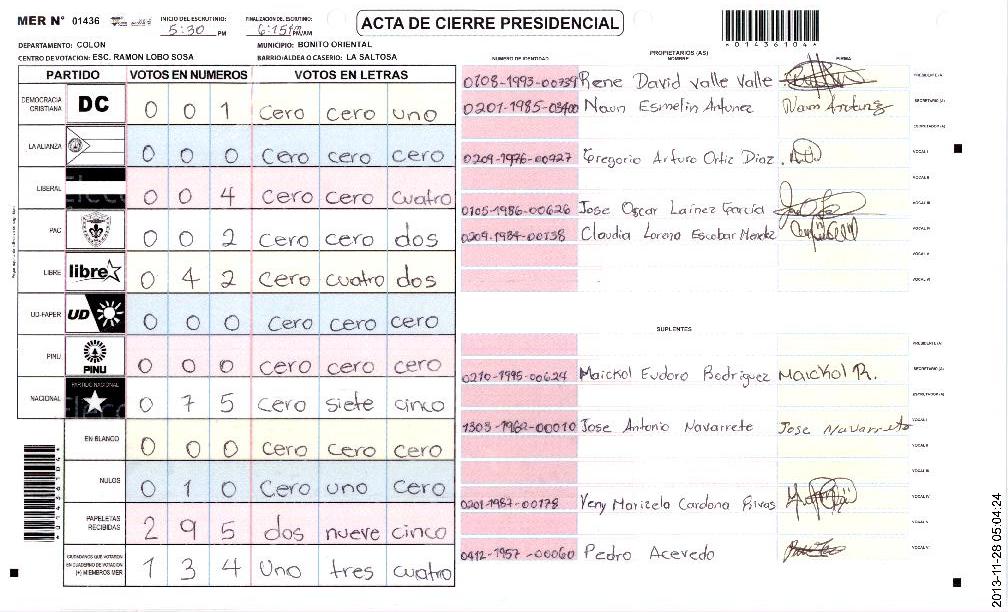 MER N° 01436
INICIO DEL ESCRUTINIO: 5:30 PM
FINALIZACIÓN DE ESCRUTINIO: 6:15 PM/AM
ACTA DE CIERRE PRESIDENCIAL
*01436104*
DEPARTAMENTO: COLON
MUNICIPIO: BONITO ORIENTAL
CENTRO DE VOTACION: ESC. RAMON LOBO SOSA
BARRIO/ALDEA O CASERIO: LA SALTOSA
PARTIDO VOTOS EN NUMEROS VOTOS EN LETRAS
DEMOCRACIA CRISTIANA DC 0 0 1 Cero cero uno
LA ALIANZA 0 0 0 Cero cero cero
LIBERAL 0 0 4 Cero Cero Cuatro
PAC 0 0 2 Cero Cero dos
LIBRE libre 0 4 2 Cero cuatro dos
UD-FAPER UD 0 0 0 Cero Cero cero
PINU PINU 0 0 0 Cero cero cero
NACIONAL PARTIDO NACIONAL 0 7 5 Cero siete cinco
EN BLANCO 0 0 0 Cero Cero Cero
NULOS 0 1 0 Cero uno Cero
PAPELETAS RECIBIDAS 2 9 5 dos nueve cinco
CIUDADANOS QUE VOTARON EN CUADERNO DE VOTACION (+) MIEMBROS MER 1 3 4 Uno tres cuatro
PROPIETARIOS (AS)
NUMERO DE IDENTIDAD NOMBRE FIRMA
0108-1993-00739 Rene David Valle Valle PRESIDENTE (A)
0201-1985-03400 Naun Esmelin Antunez SECRETARIO (A)
ESCRUTADOR (A)
0209-1976-00927 Gregorio Arturo Ortiz Diaz. VOCAL I
VOCAL II
0105-1986-00626 Jose Oscar Lainez Garcia VOCAL III
0209-1984-00738 Claudia Lorena Escobar Mendez VOCAL IV
VOCAL V
VOCAL VI
SUPLENTES
PRESIDENTE (A)
0210-1995-00624 Maickol Eudoro Rodriguez Maickol R. SECRETARIO (A)
ESCRUTADOR (A)
1303-1962-00010 Jose Antonio Navarrete Jose Navarrete VOCAL I
VOCAL II
VOCAL III
0201-1987-00178 Yeny Marizela Cardona Rivas VOCAL IV
VOCAL V
0412-1957-00060 Pedro Acevedo VOCAL VI
2013-11-28 05:04:24